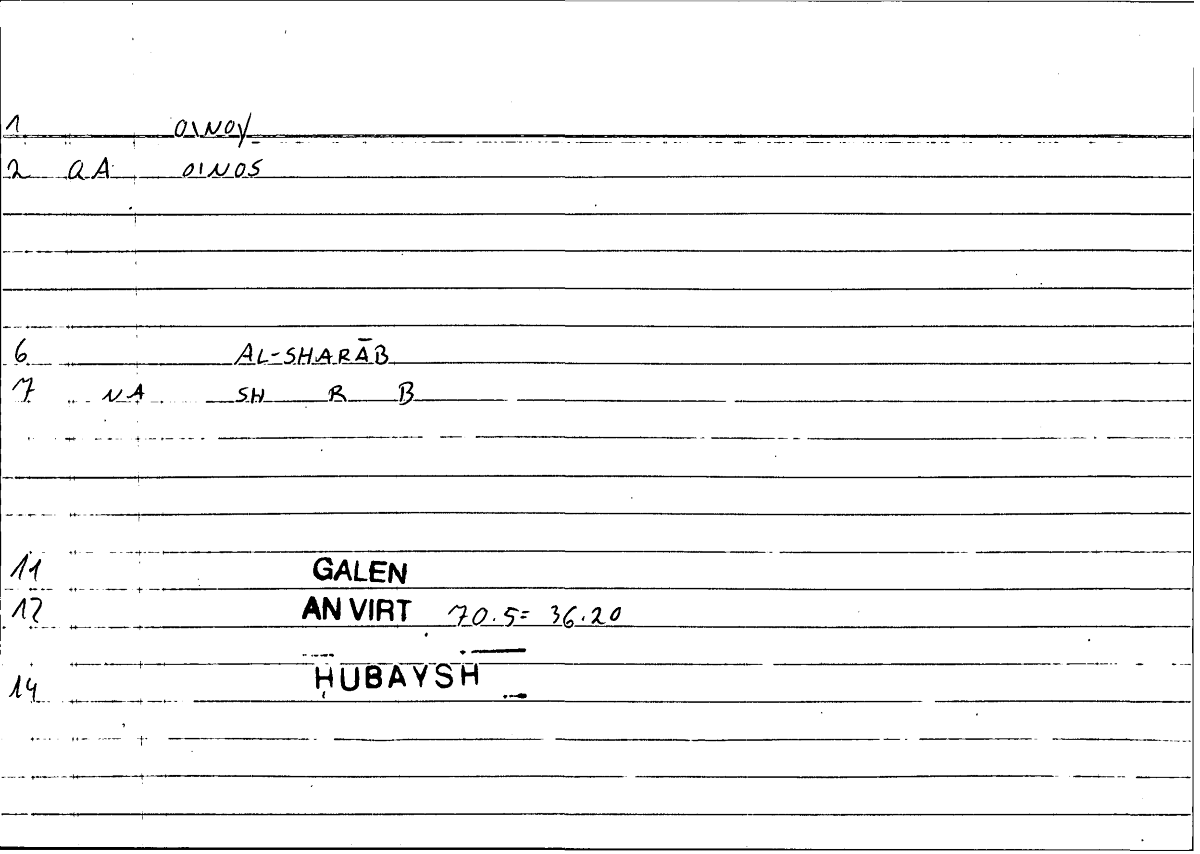 1 OINOY
2 QA OINOS
6 AL-SHARĀB
7 NA SH R B
11 GALEN
12 AN VIRT 70.5= 36.20
14 ḤUBAYSH